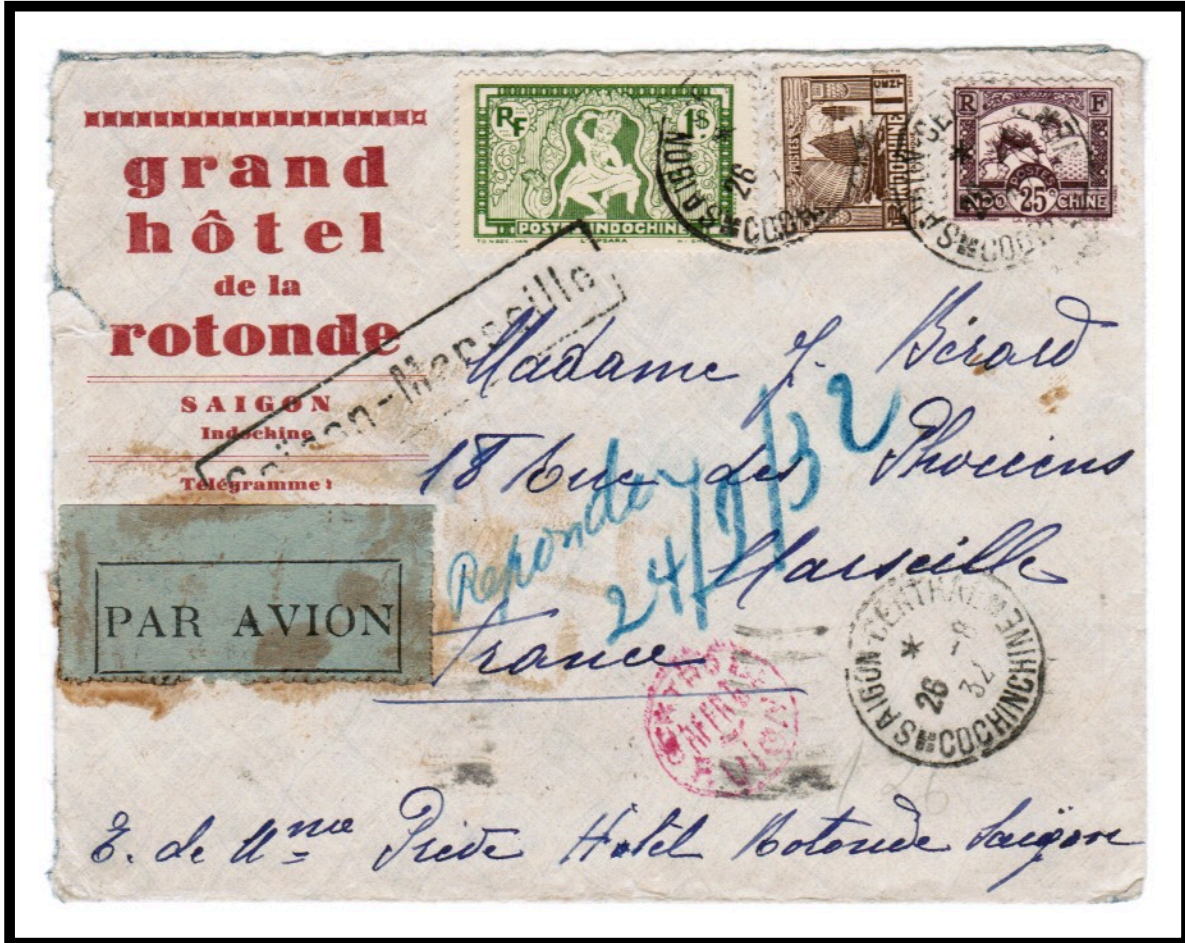 grand
hôtel
de la
rotonde
SAIGON
Indochine
Télégramme :
PAR AVION
RF 1$
POSTES INDOCHINE
POSTES INDOCHINE
R F
POSTES
INDO 25c CHINE
SAIGON
26
COCH
Saigon-Marseille
Madame J. Bérard
18 Rue des Phocéens
Marseille
France
Repondu
24/9/32
SAIGON-CENTRAL
26 -8 32
COCHINCHINE
126
E. de Mme Hotel Rotonde Saïgon